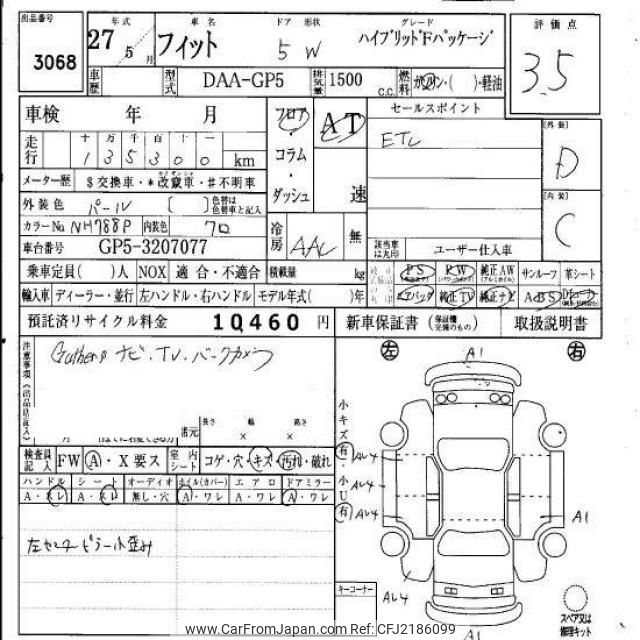 出品番号 年式 車名 ドア 形状 グレード 評価点
3068 27年 5月 フィット 5 W ハイブリッドFパッケージ 3.5
車歴 型式 DAA-GP5 排気量 1500 C.C. 燃料 ガソリン・( )・軽油
車検 年 月 フロア・ AT セールスポイント [外装]
走行 十 万 千 百 十 一 コラム・ ETC D
1 3 5 3 0 0 km ダッシュ 速
メーター歴 $交換車・*改竄車・#不明車 [内装]
外装色 パール [ ] 色替は色替車と記入 C
カラーNo. NH788P 内装色 クロ 冷房 AAC 無
車台番号 GP5-3207077 該当車は丸印 ユーザー仕入車
乗車定員( )人 NOX 適合・不適合 積載量 kg PS PW 純正AW サンルーフ 革シート
輸入車 ディーラー・並行 左ハンドル・右ハンドル モデル年式( )年 エアバッグ 純正TV 純正ナビ ABS
預託済リサイクル料金 10,460 円 新車保証書 (保証継完備のもの) 取扱説明書
注意事項(出品店記入) Gathers ナビ・TV・バックカメラ
左 A1 右
諸元 長さ × 幅 × 高さ
小キズ(有)・小U(有)
検査員記入 FW A・X要ス 室内シート コゲ・穴・キズ・汚れ・破れ AU4
ハンドル シート オーディオ ホイル(カバー) エアロ ドアミラー AU4
A・スレ A・スレ 無し・穴 A・ワレ A・ワレ A・ワレ AU4 A1
左センターピラー小歪み
キーコーナー AU4
A1 スペア又は修理キット
www.CarFromJapan.com Ref: CFJ2186099